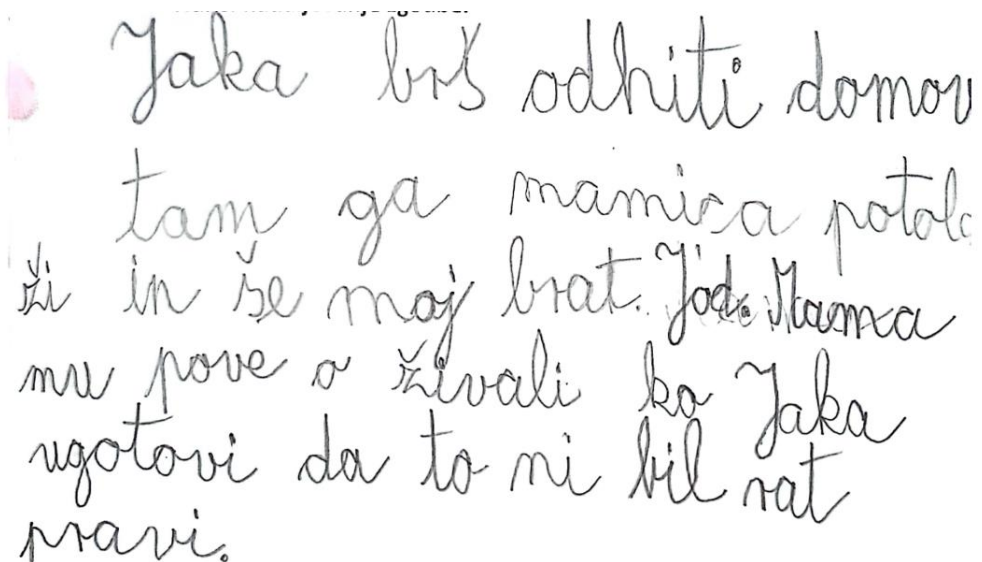 Jaka brš odhiti domov
tam ga mamica potola
ži in še moj brat. Jod. Mama
mu pove o živali ko Jaka
ugotovi da to ni bil rat
pravi.